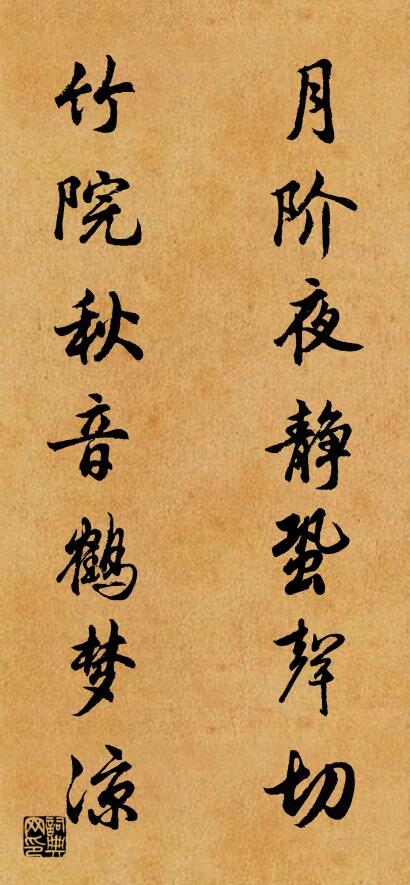 月阶夜静蛩聲切
竹院秋音鹤梦凉
詞典网印